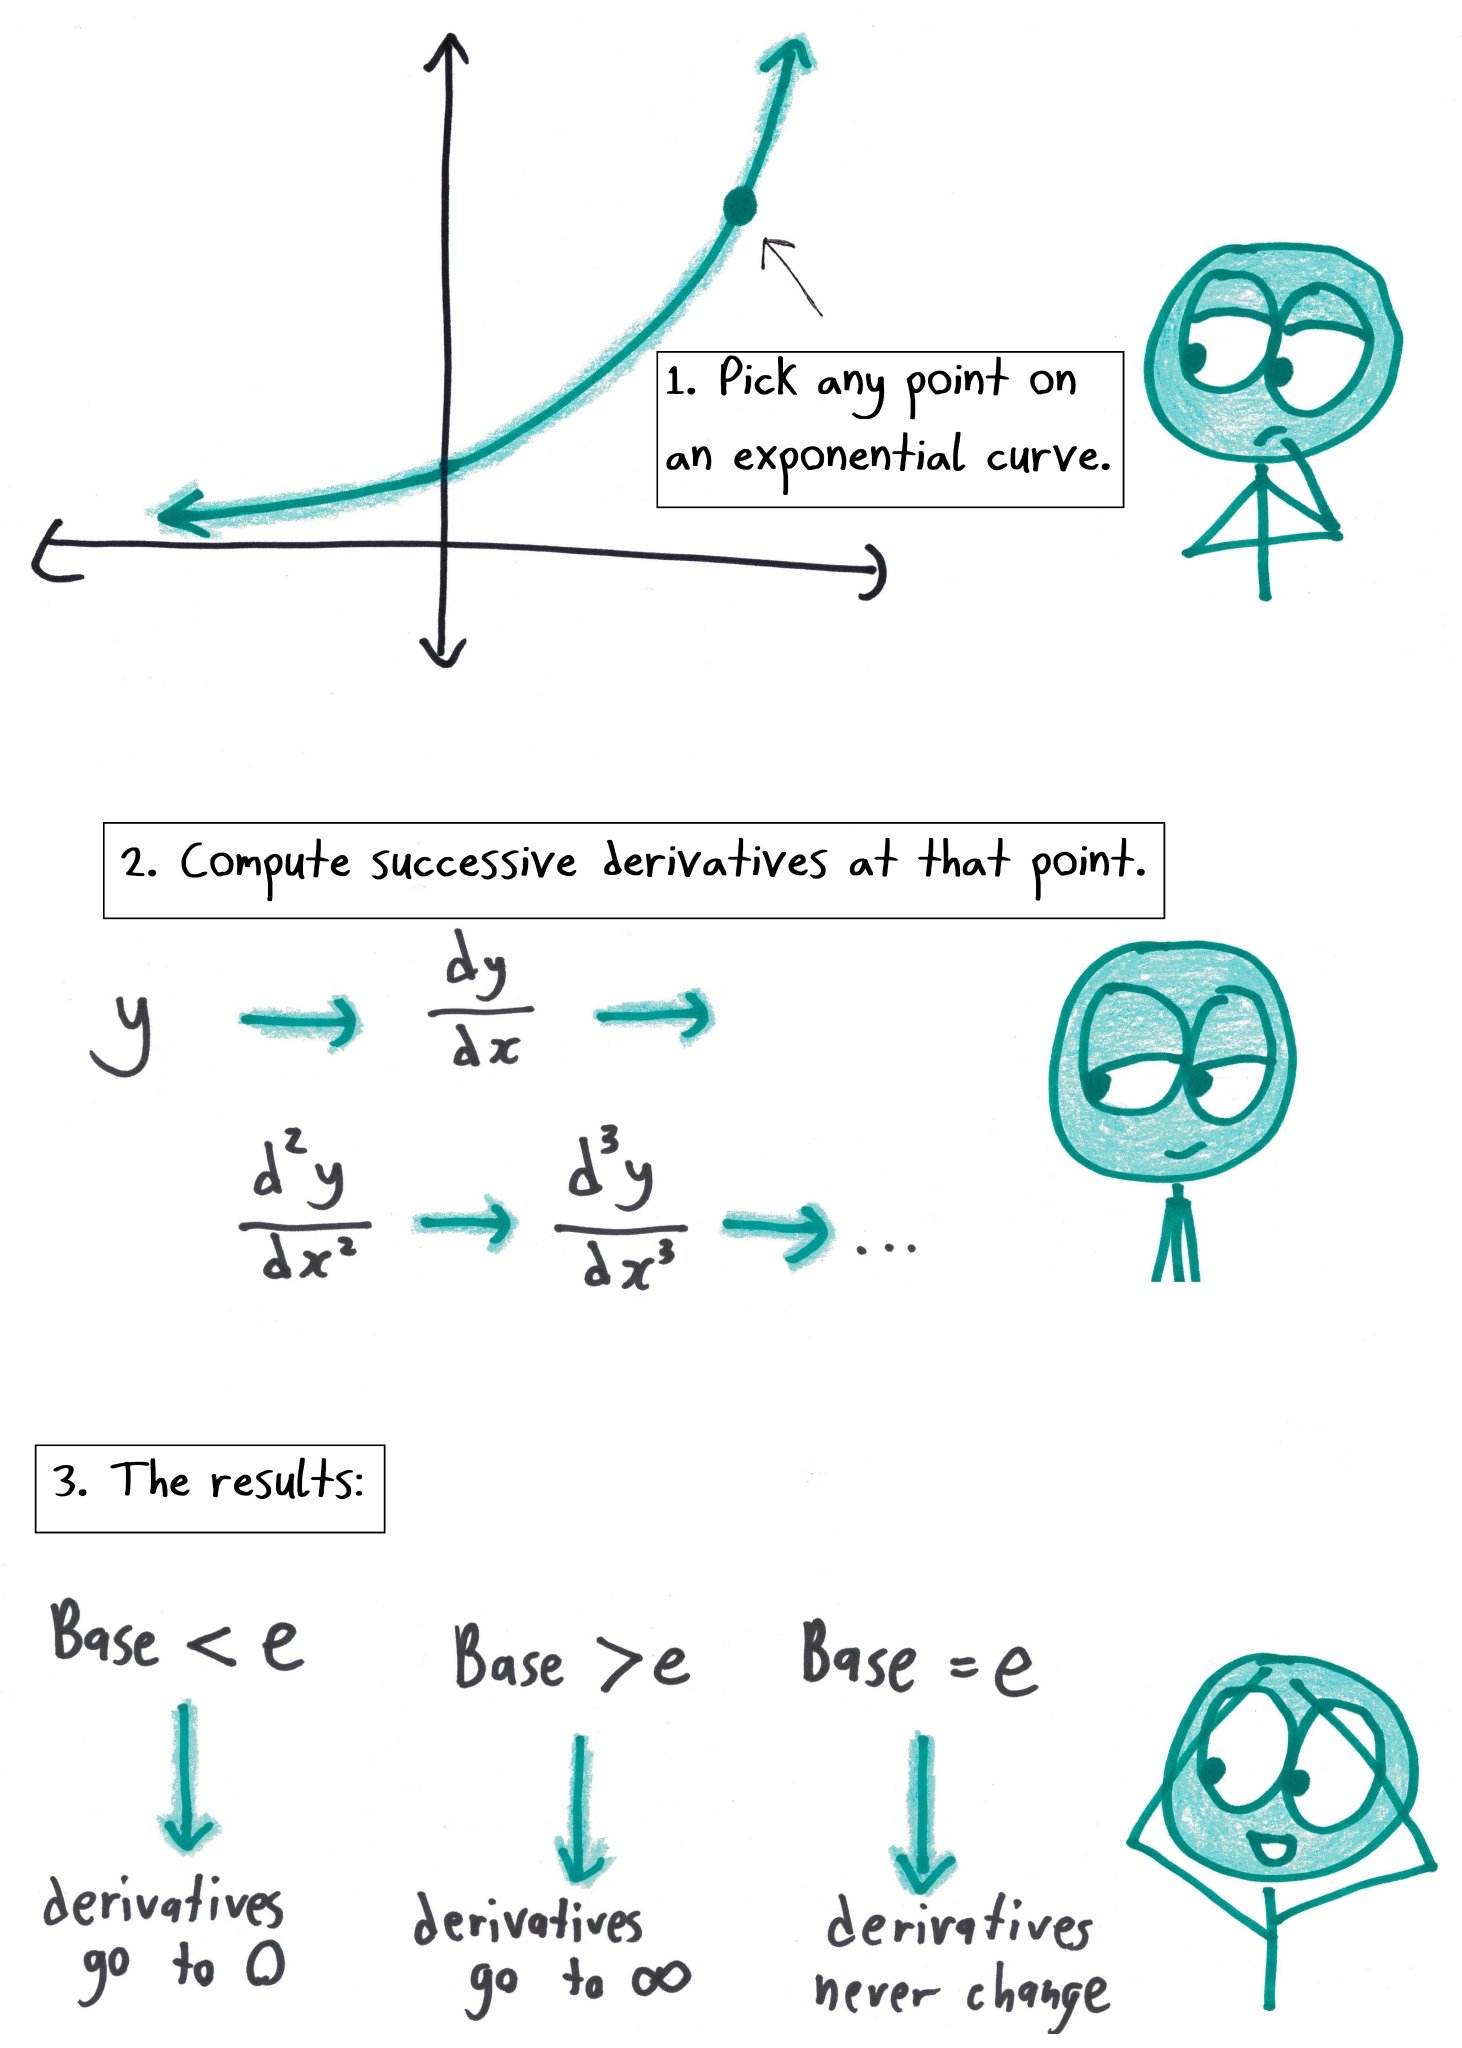 1. Pick any point on
an exponential curve.
2. Compute successive derivatives at that point.
y → dy/dx →
d²y/dx² → d³y/dx³ → ...
3. The results:
Base < e
Base > e
Base = e
derivatives
go to 0
derivatives
go to ∞
derivatives
never change